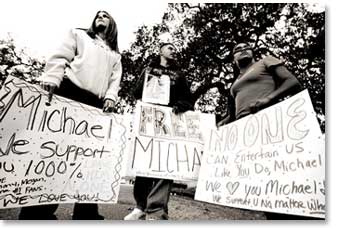 Michael
We Support
You 1000%
#1 FANS.
WE LOVE YOU!
FREE
MICHA
NO ONE
CAN Entertain us
Like You Do, Michael
We ♡ you Michael
We Support U No matter What